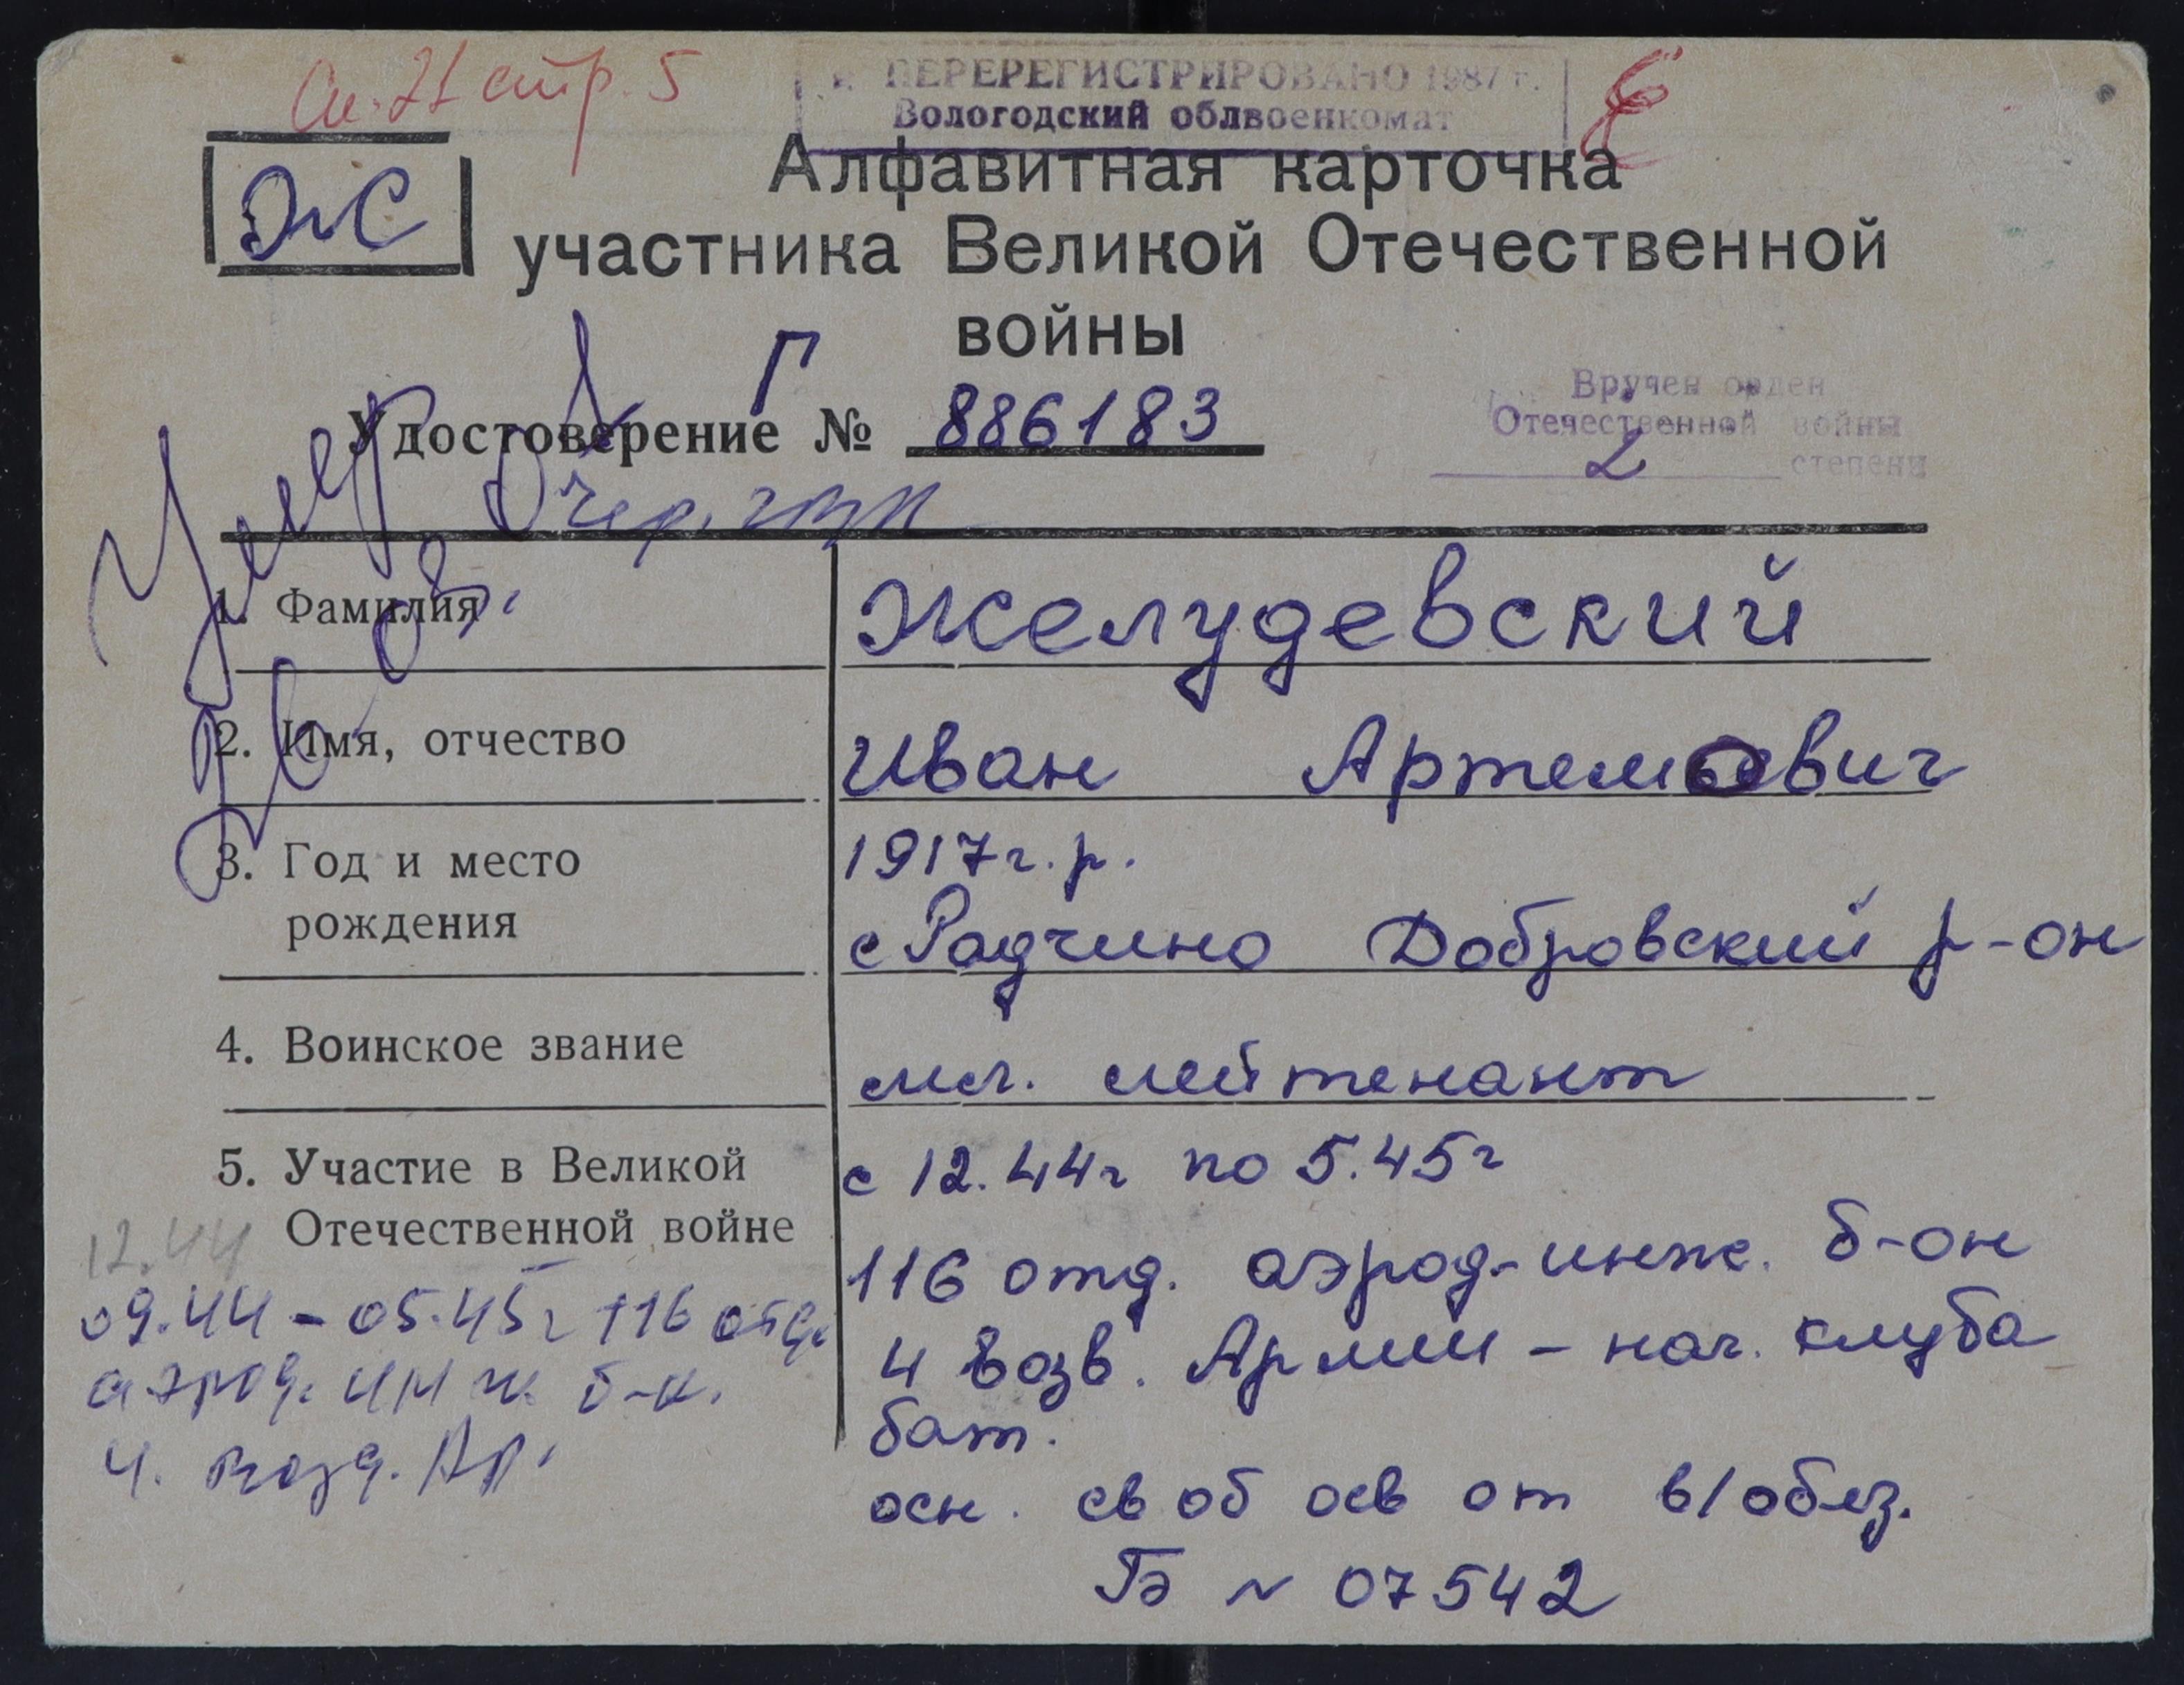 стр. 5
ПЕРЕРЕГИСТРИРОВАНО 1987 г.
Вологодский облвоенкомат
Ж
Алфавитная карточка
участника Великой Отечественной
войны
Г
Удостоверение № 886183
Вручен орден
Отечественной войны
2 степени
Умер
1. Фамилия Желудевский
2. Имя, отчество Иван Артемович
3. Год и место рождения
1917г.р.
с Радчино Добровский р-он
4. Воинское звание мл. лейтенант
5. Участие в Великой Отечественной войне
с 12.44г по 5.45г
116 отд. аэрод-инж. б-он
4 возв. Армии - нач. клуба
бат.
осн. св об осв от в/обяз.
ГБ № 07542
12.44
09.44 - 05.45г 116 отд.
аэрод. инж. б-н.
4. возд. Ар.